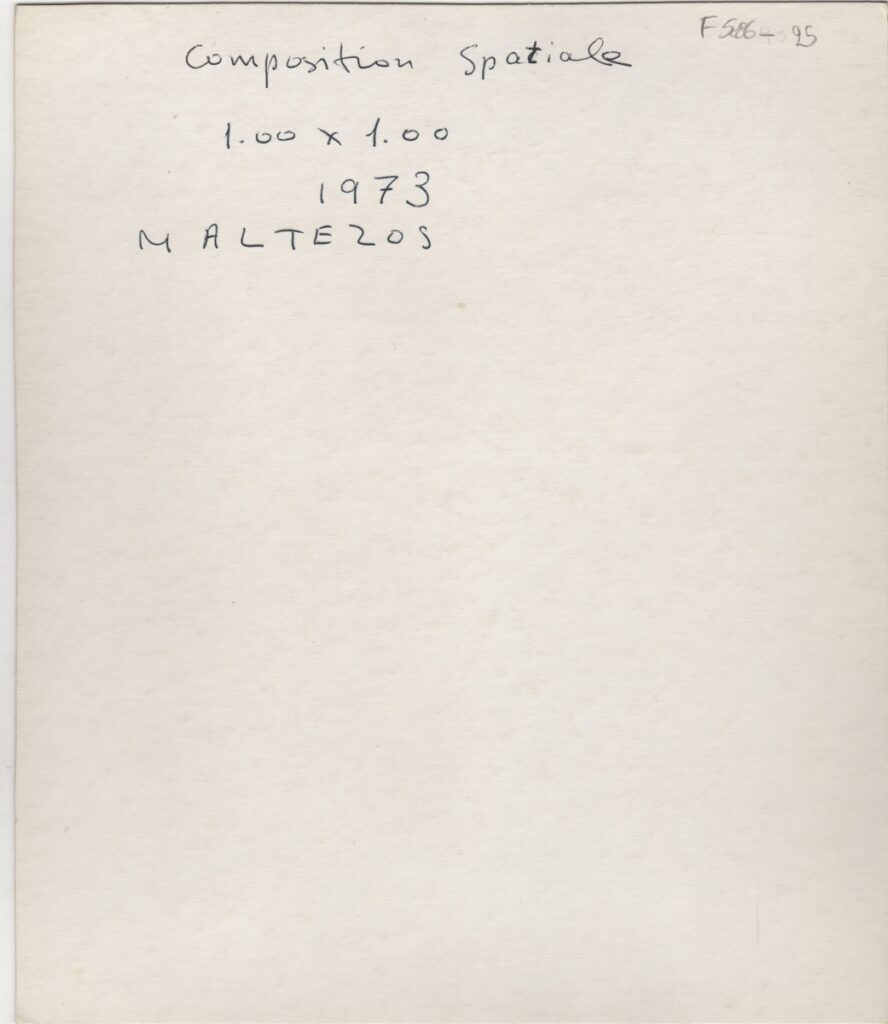 Composition Spatiale
1.00 x 1.00
1973
MALTEZOS